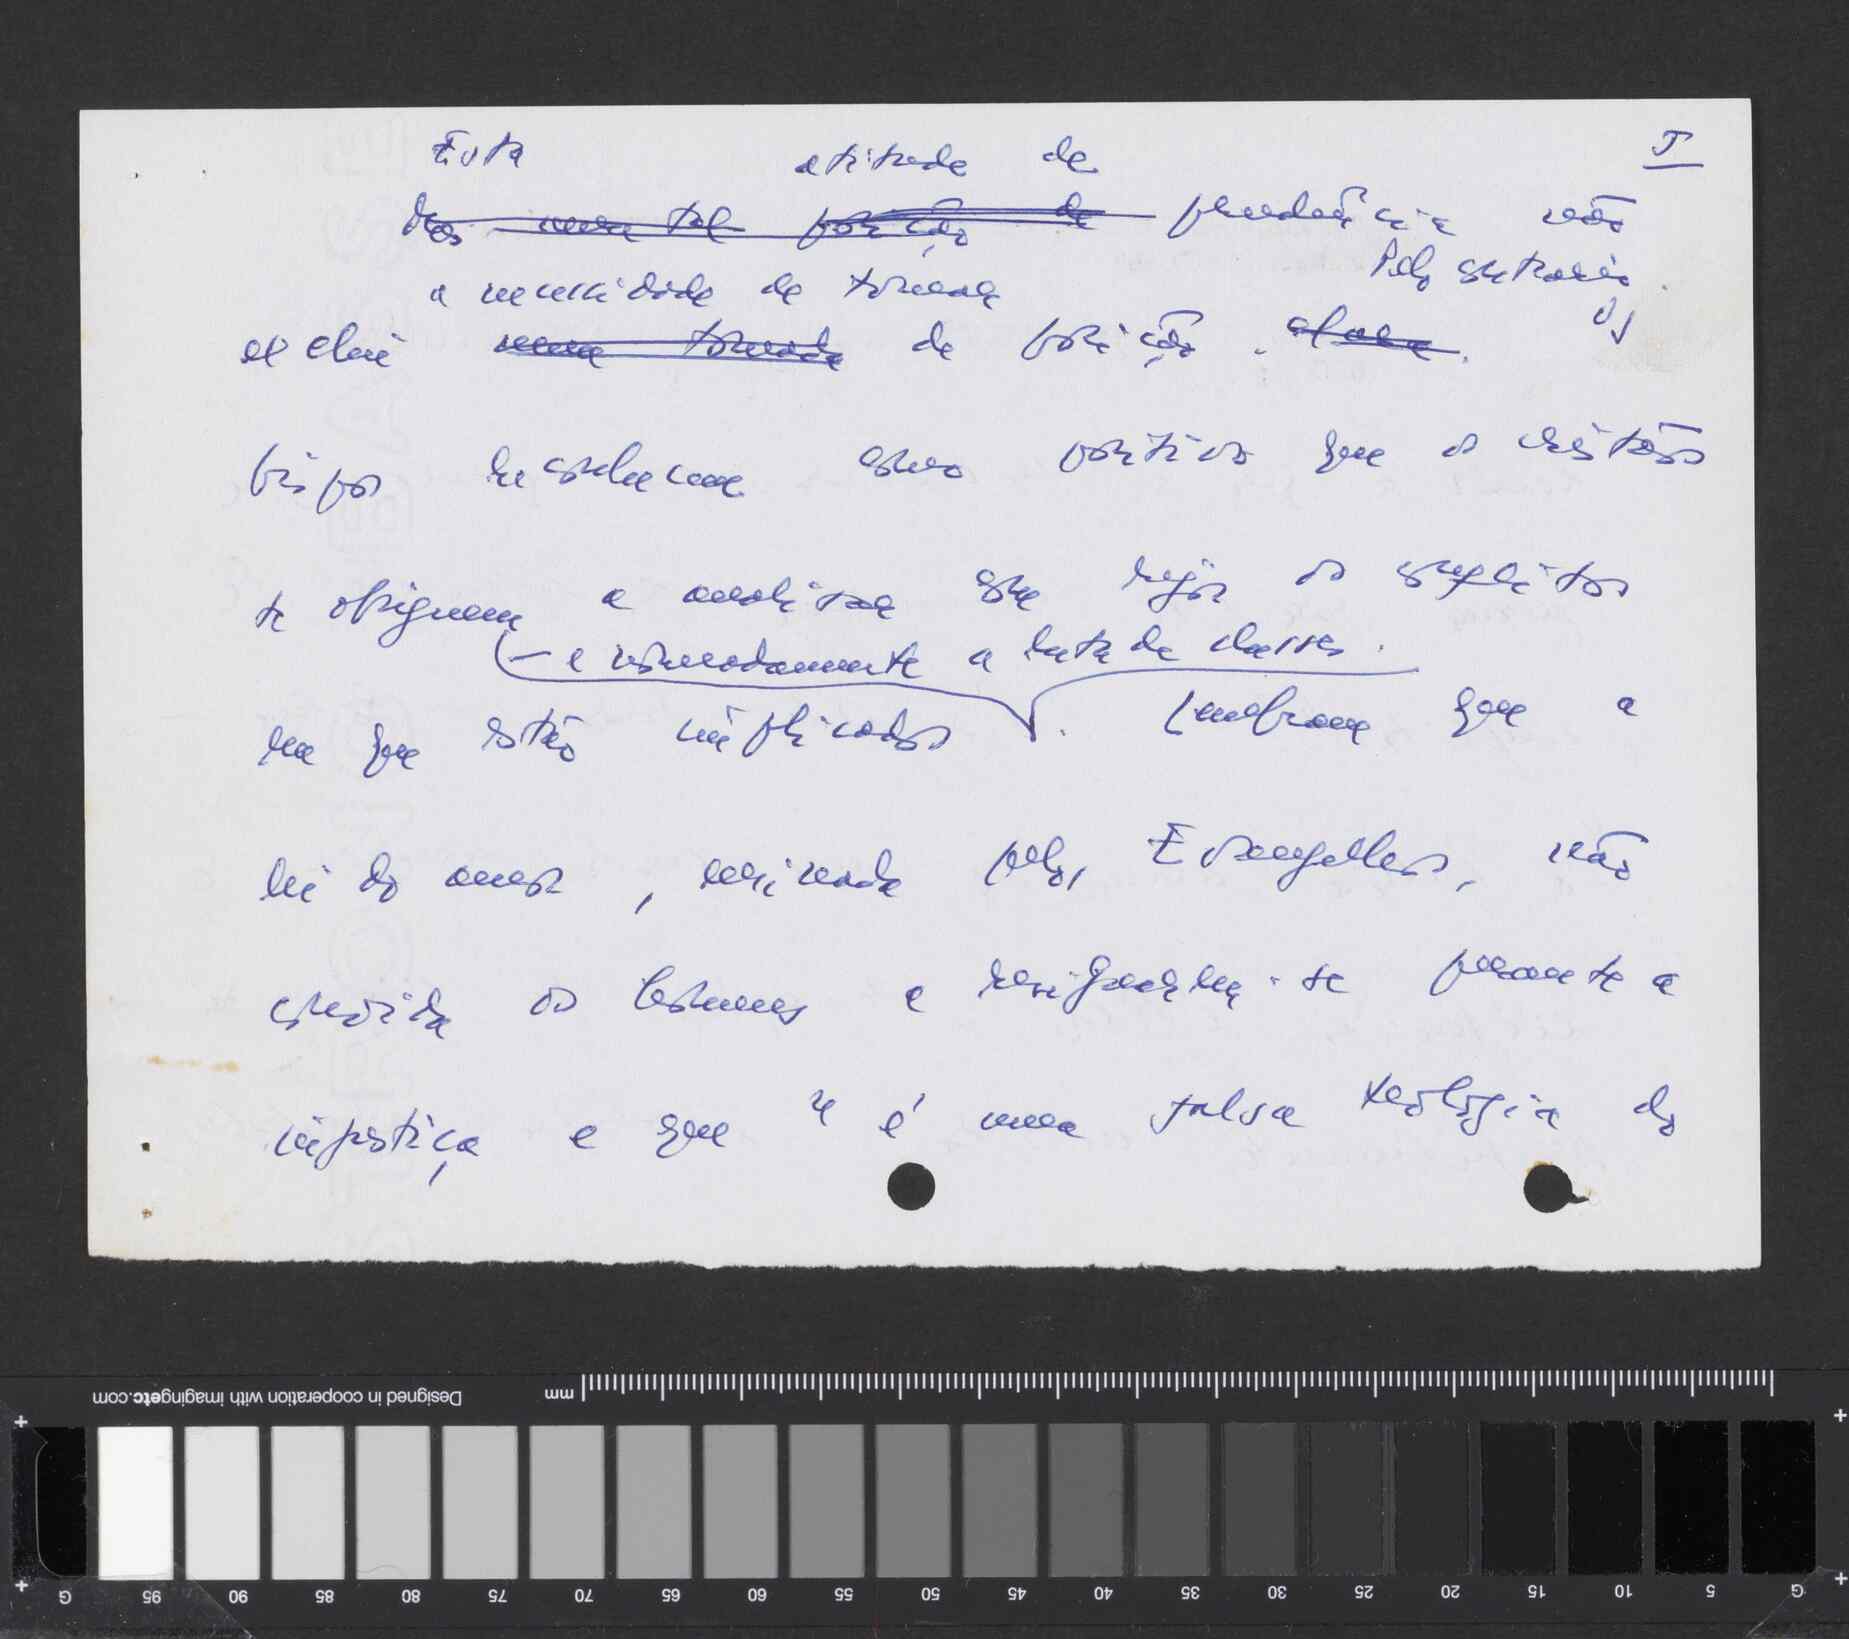 I
Esta atitude de
Mas uma tal posição de prudência não
a necessidade de tomar Pelo contrário
exclui uma tomada de posição. os
bispos reconhecem como positivo que os cristãos
se obriguem a analisar com rigor os conflitos
— e nomeadamente a luta de classes.
em que estão implicados. Lembram que a
lei do amor, ensinada pelo Evangelho, não
convida os homens a resignarem-se perante a
injustiça e que "é uma falsa teologia do
mm
Designed in cooperation with imagingetc.com
G 95 90 85 80 75 70 65 60 55 50 45 40 35 30 25 20 15 10 5 G